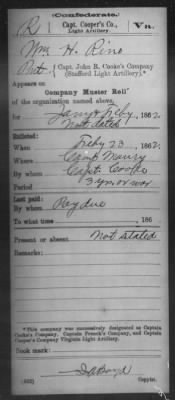 (Confederate.)
R Capt. Cooper's Co., Vn.
Light Artillery.
Wm. H. Rino
Pvt., Capt. John R. Cooke's Company
(Stafford Light Artillery).*
Appears on
Company Muster Roll
of the organization named above,
for Jany & Feby, 1862.
Not dated
Enlisted:
When Feby 23, 1862.
Where Camp Maury
By whom Capt. Cooke
Period 3 yrs or war
Last paid:
By whom Pay due
To what time , 186 .
Present or absent Not stated
Remarks:
*This company was successively designated as Captain
Cooke's Company, Captain French's Company, and Captain
Cooper's Company Virginia Light Artillery.
Book mark:
(642) Copyist.